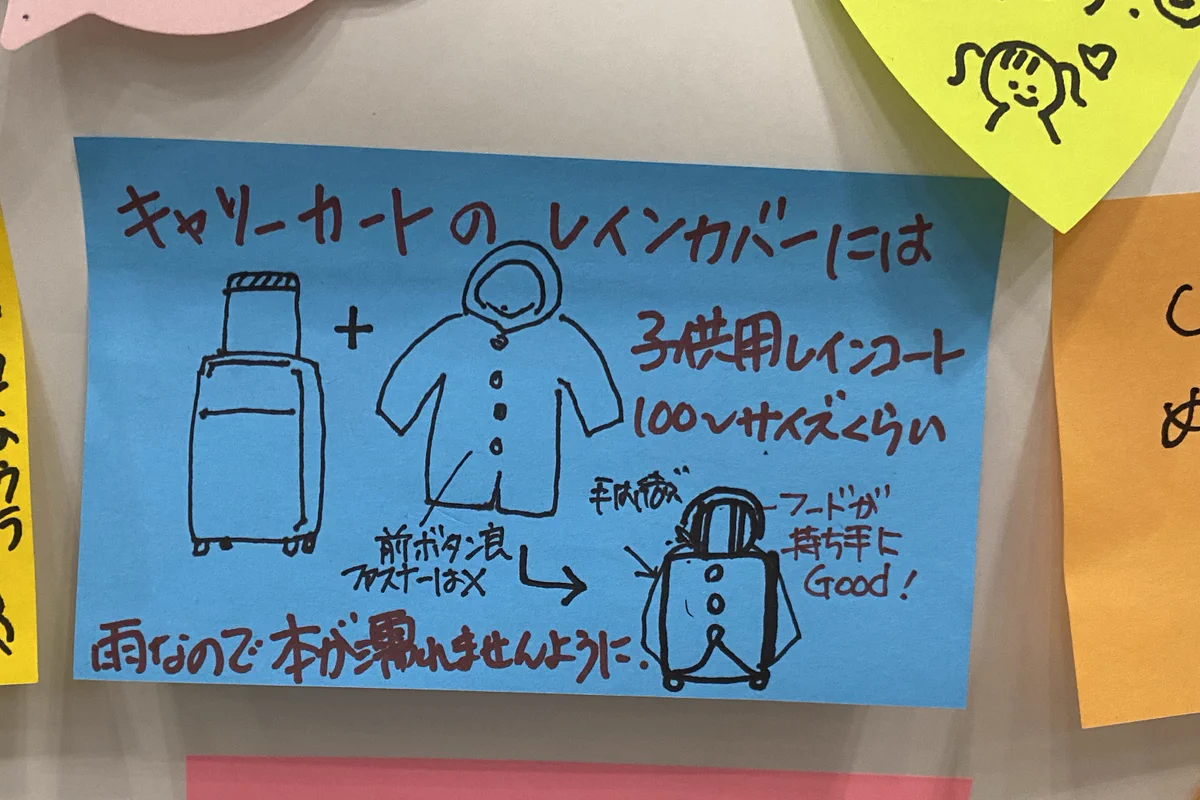 キャリーカートの レインカバーには
子供用レインコート
100〜サイズくらい
フードが
持ち手に
Good!
前ボタン良
ファスナーは×
雨なので本が濡れませんように.
め